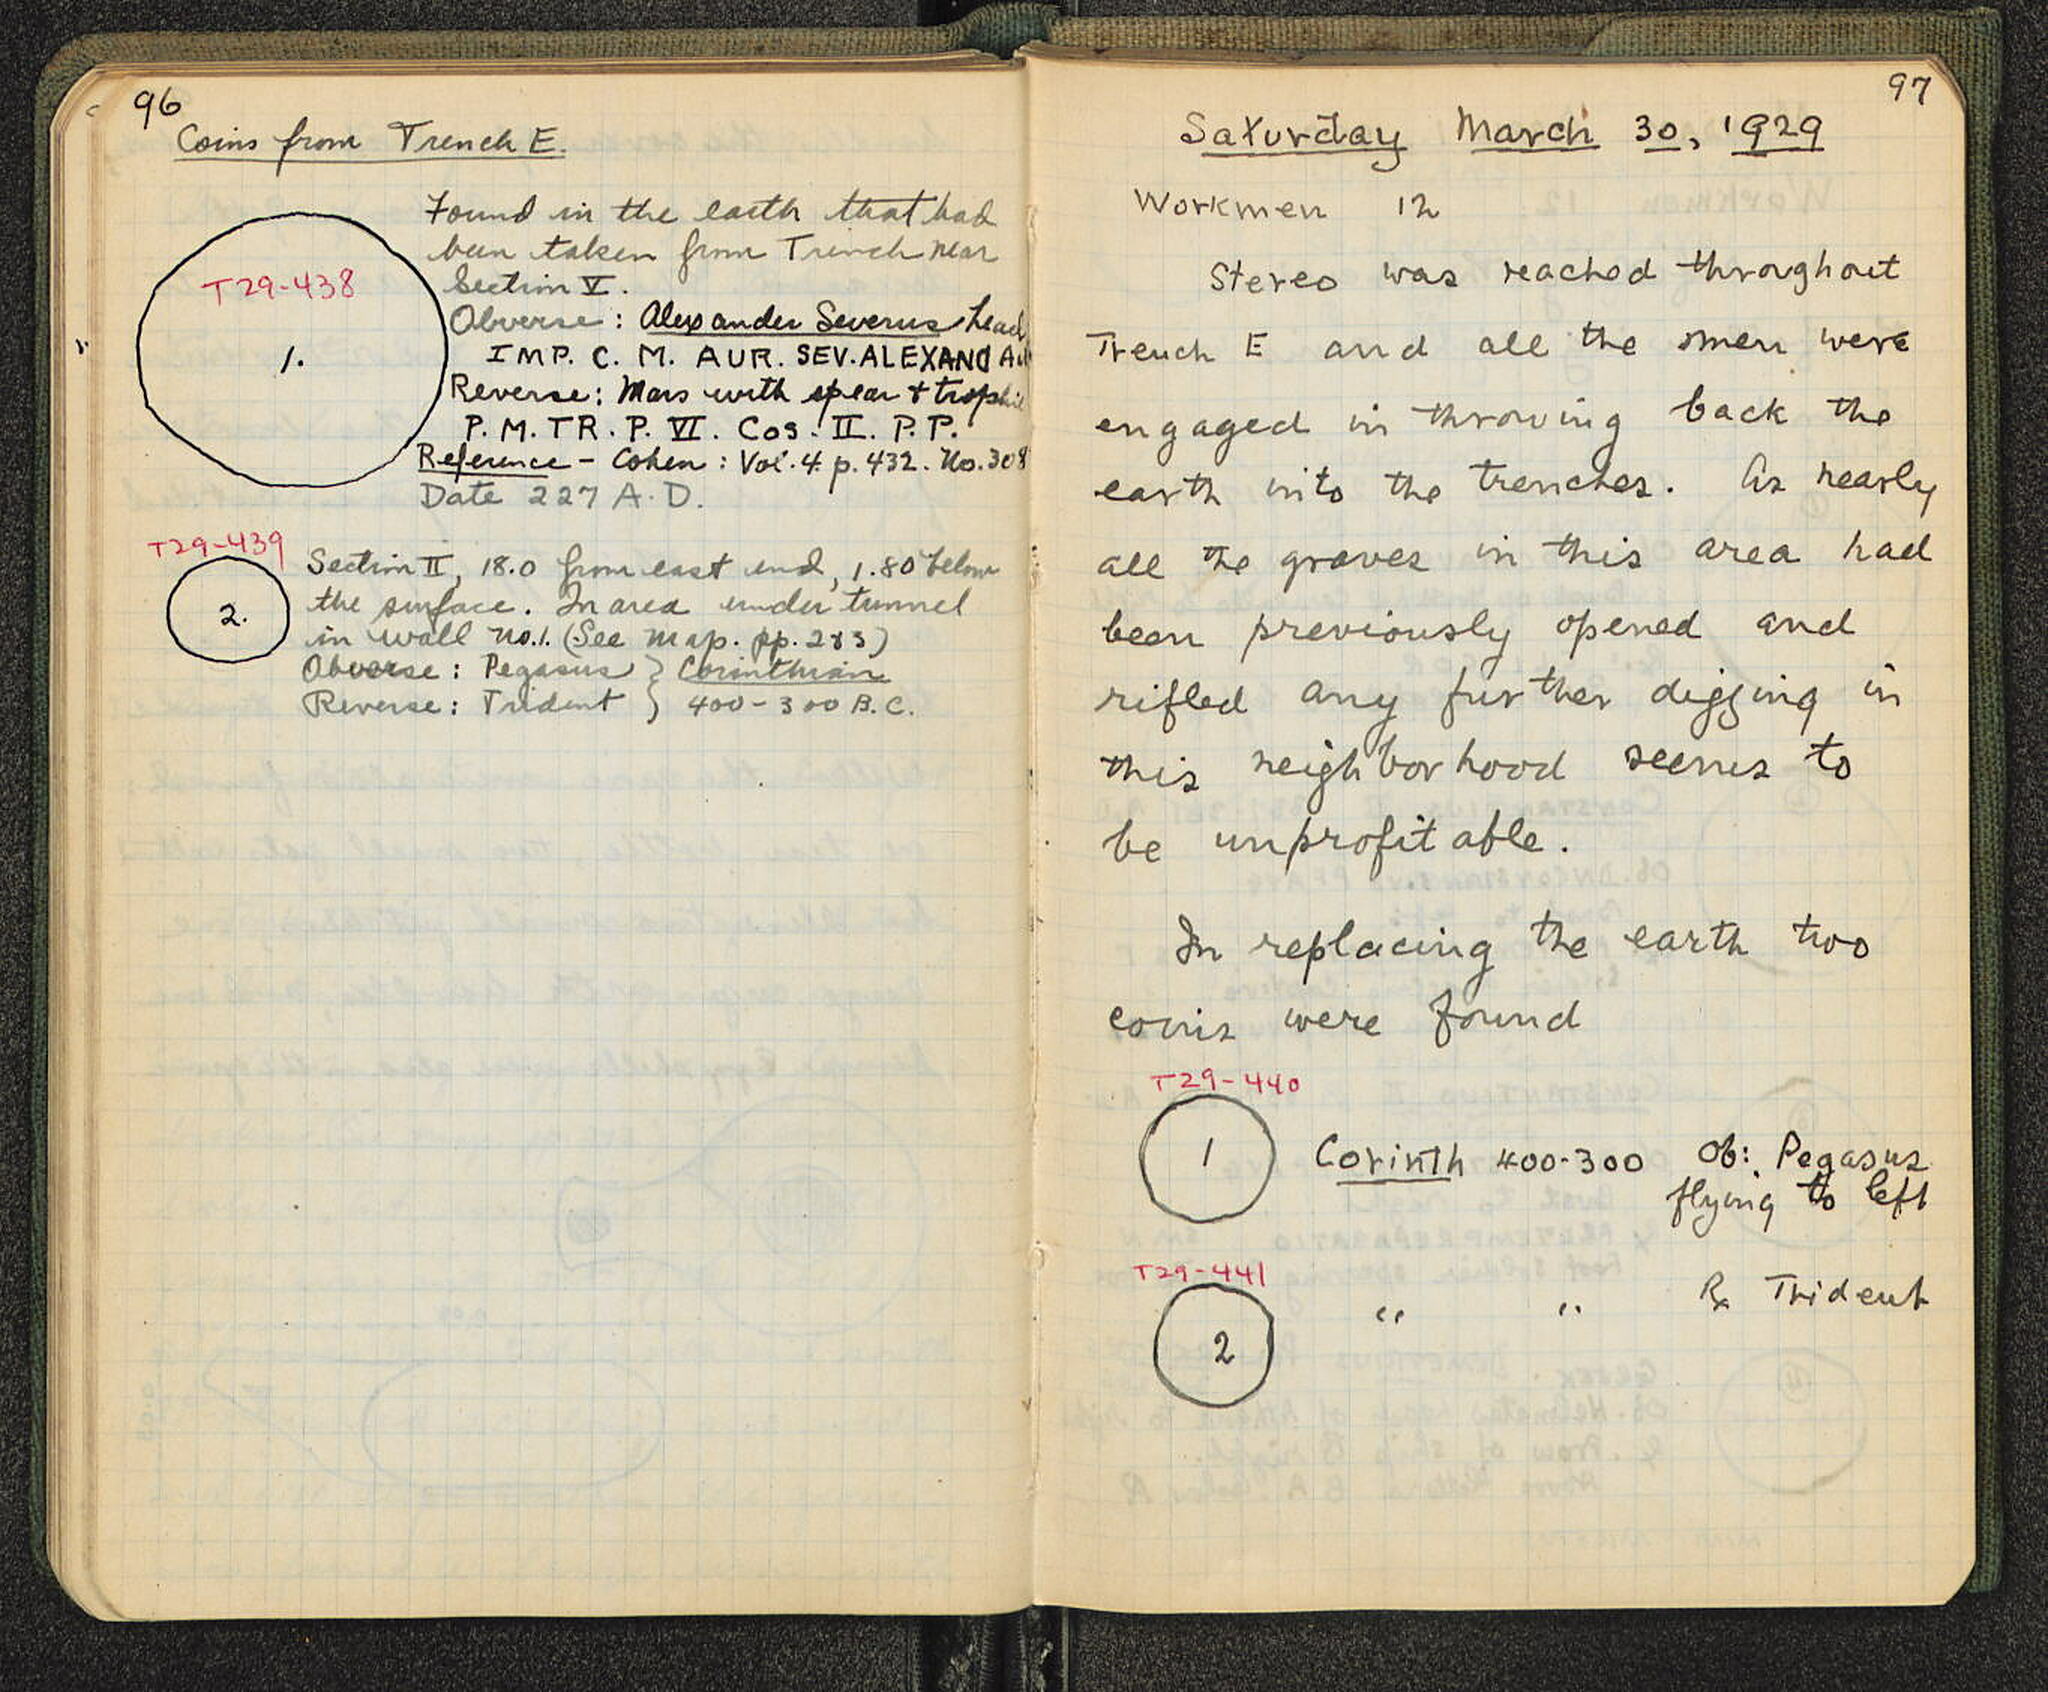 96
Coins from Trench E.
Found in the earth that had
been taken from Trench near
Section V.
T29-438
1.
Obverse: Alexander Severus head
IMP. C. M. AUR. SEV. ALEXAND
Reverse: Mars with spear + trophie
P. M. TR. P. VI. COS. II. P. P.
Reference - Cohen: Vol. 4 p. 432. No. 308
Date 227 A.D.
T29-439
2.
Section II, 18.0 from east end, 1.80 below
the surface. In area under tunnel
in wall No. 1. (See map. pp. 2 & 3)
Obverse: Pegasus } Corinthian
Reverse: Trident } 400-300 B.C.
97
Saturday March 30, 1929
Workmen 12
Stereo was reached throughout
Trench E and all the men were
engaged in throwing back the
earth into the trenches. As nearly
all the graves in this area had
been previously opened and
rifled any further digging in
this neighborhood seems to
be unprofitable.
In replacing the earth two
coins were found
T29-440
1
Corinth 400-300 Ob: Pegasus
flying to left
T29-441
2
" " Rx Trident